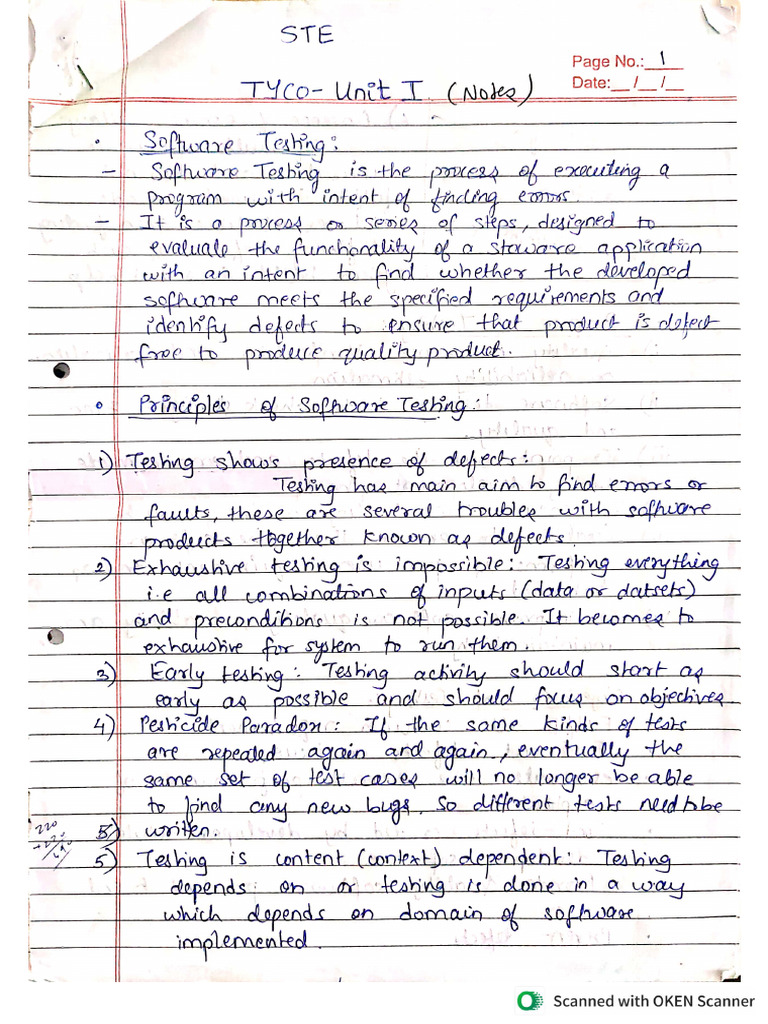 STE
Page No.: 1
Date: __/__/__
TYCO - Unit I (Notes)
• Software Testing :
– Software Testing is the process of executing a
program with intent of finding errors.
– It is a process or series of steps, designed to
evaluate the functionality of a stoware application
with an intent to find whether the developed
software meets the specified requirements and
identify defects to ensure that product is defect
free to produce quality product.
• Principles of Software Testing.
1) Testing shows presence of defects :
Testing has main aim to find errors or
faults, these are several troubles with software
products together known as defects.
2) Exhaustive testing is impossible : Testing everything
i.e all combinations of inputs (data or datsets)
and preconditions is not possible. It becomes to
exhaustive for system to run them.
3) Early testing : Testing activity should start as
early as possible and should focus on objectives.
4) Pesticide Paradox : If the same kinds of tests
are repeated again and again, eventually the
same set of test cases will no longer be able
to find any new bugs. So different tests need to be
5) written.
5) Testing is content (context) dependent : Testing
depends on or testing is done in a way
which depends on domain of software
implemented.
Scanned with OKEN Scanner